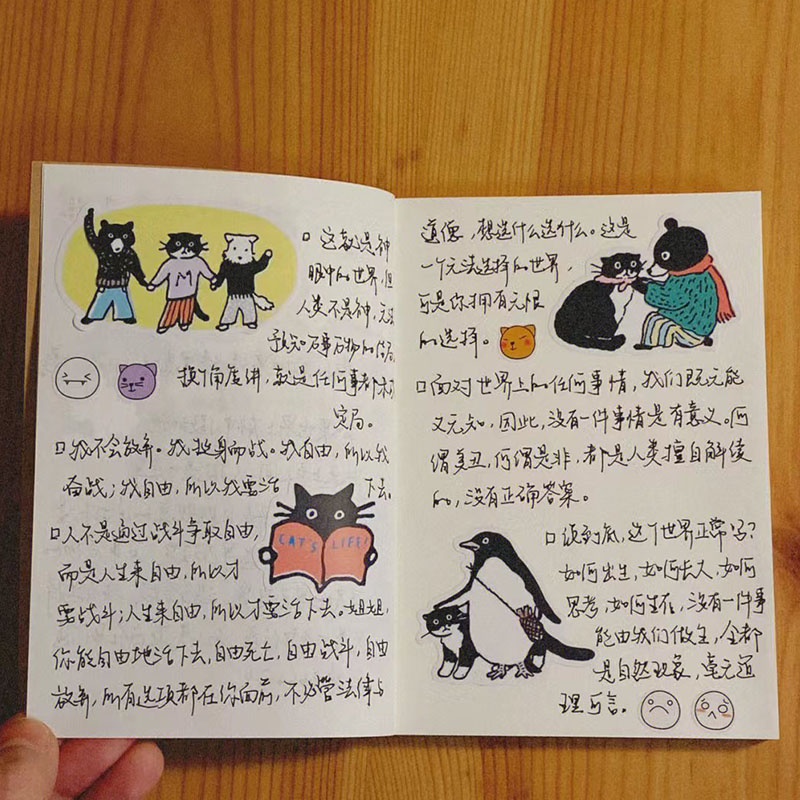 □ 这就是神
眼中的世界,但
人类不是神,无法
预知万事万物的结局
换个角度讲,就是任何事都未
定局。
□ 我不会放弃。我挺身而战。我自由,所以我
奋战;我自由,所以我要活下去。
M
CAT'S LIFE!
□ 人不是通过战斗争取自由,
而是人生来自由,所以才
要战斗;人生来自由,所以才要活下去。姐姐,
你能自由地活下去,自由死去,自由战斗,自由
放弃,所有选项都在你面前,不必管法律与
道德,想选什么选什么。这是
一个无法选择的世界,
可是你拥有无限
的选择。
□ 面对世界上的任何事情,我们既无能
又无知,因此,没有一件事情是有意义。何
谓美丑,何谓是非,都是人类擅自解读
的,没有正确答案。
□ 说到底,这个世界正常吗?
如何出生,如何长大,如何
思考,如何生存,没有一件事
能由我们做主,全都
是自然现象,毫无道
理可言。